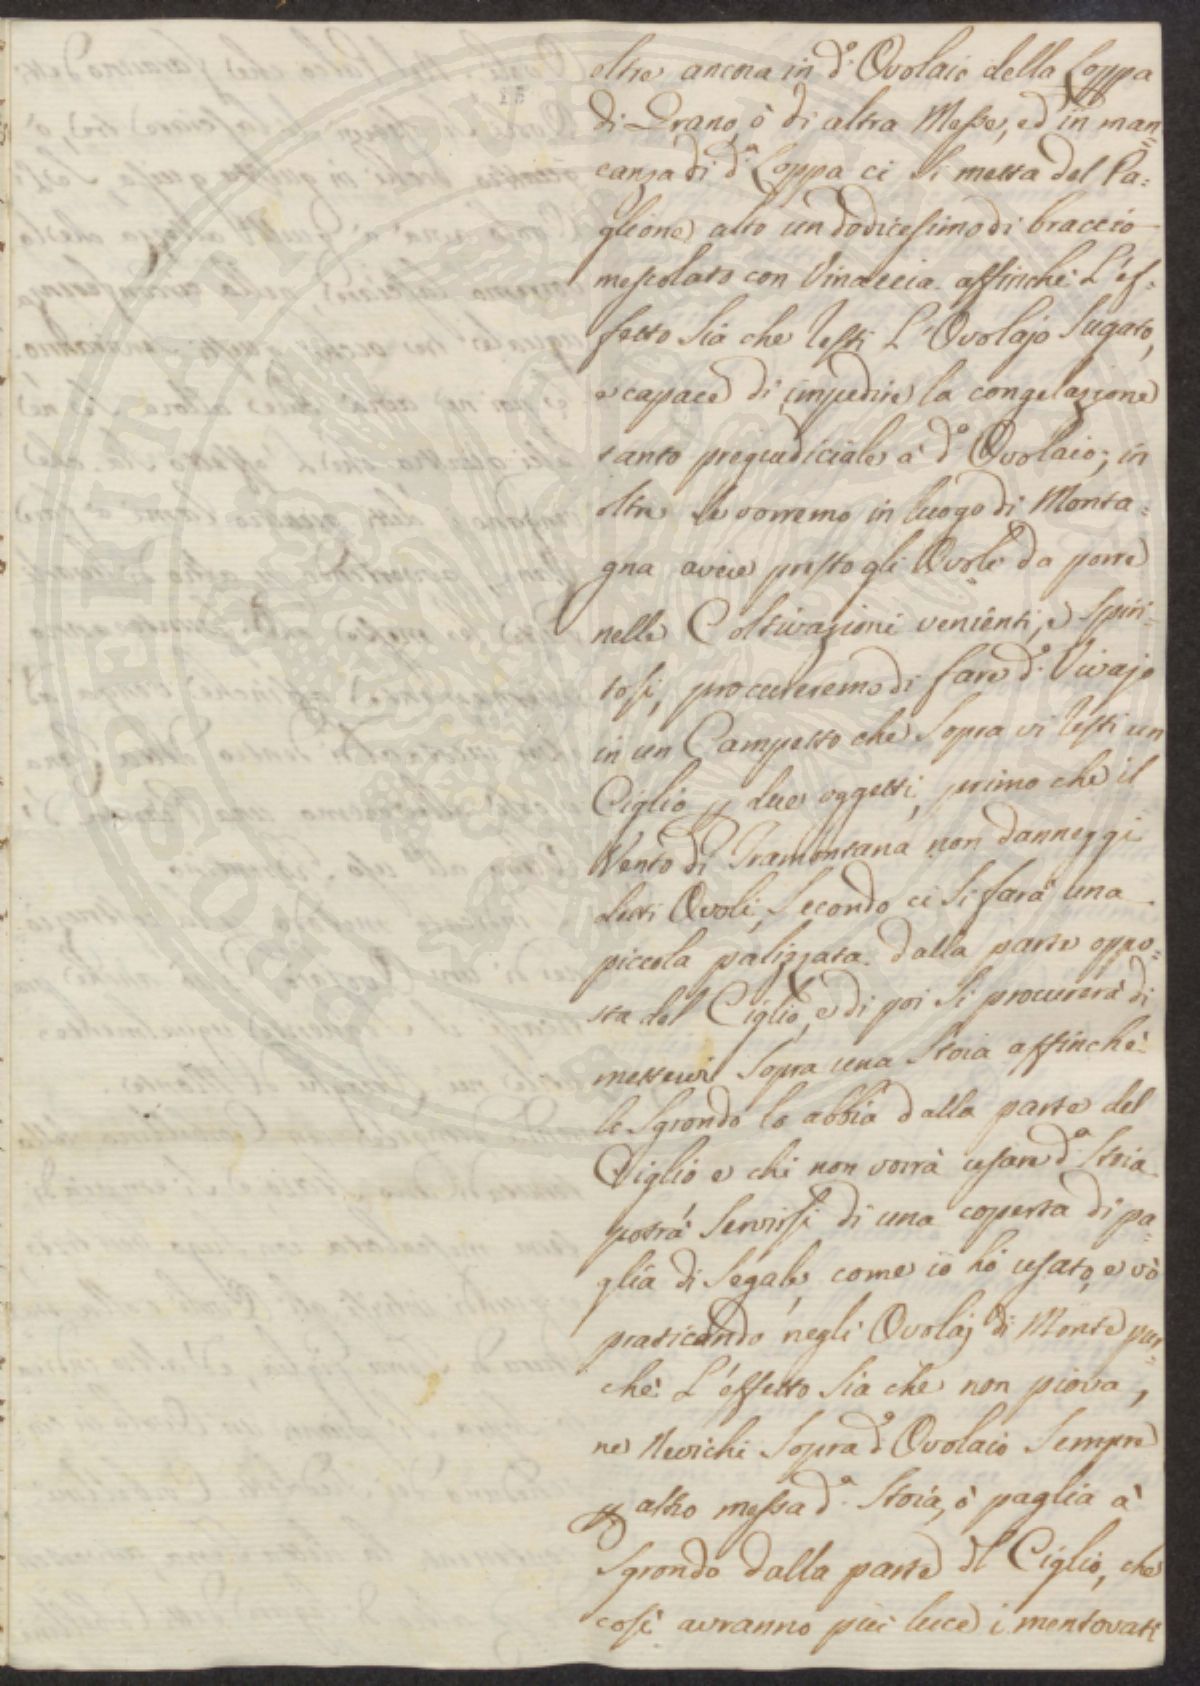 oltre ancora in d.º Ovolaio della Loppa
di Grano, ò di altra Messe, ed in man=
canza di d.ª Loppa ci si metta del Pa=
glione alto un dodicesimo di braccio
mescolato con Vinaccia affinchè L'ef=
fetto sia che resti L'Ovolajo sugato,
e capace di impedire la congelazione
tanto pregiudiciale à d.º Ovolaio; in
oltre se vorremo in luogo di Monta=
gna avere presto gli Ovoli da porre
nelle Coltivazioni venienti, e spiri=
tosi, procureremo di fare d.º Vivajo
in un Campetto che sopra vi resti un
Ciglio p due oggetti, primo che il
Vento di Tramontana non danneggi
detti Ovoli, Secondo ci si farà una
piccola palizzata dalla parte oppo=
sta del Ciglio, e di poi si procurerà di
mettervi sopra una Stoia affinchè
lo sgrondo lo abbia dalla parte del
Ciglio e chi non vorrà usare d.ª Stoia
potrà servirsi di una coperta di pa=
glia di Segale, come io hò usato, e vò
praticando negli Ovolaj di Monte pur=
chè L'effetto sia che non piova,
ne Nevichi sopra d.º Ovolaio sempre
p altro messa d.ª Stoia, ò paglia à
sgrondo dalla parte dl Ciglio, che
così avranno più luce i mentovati